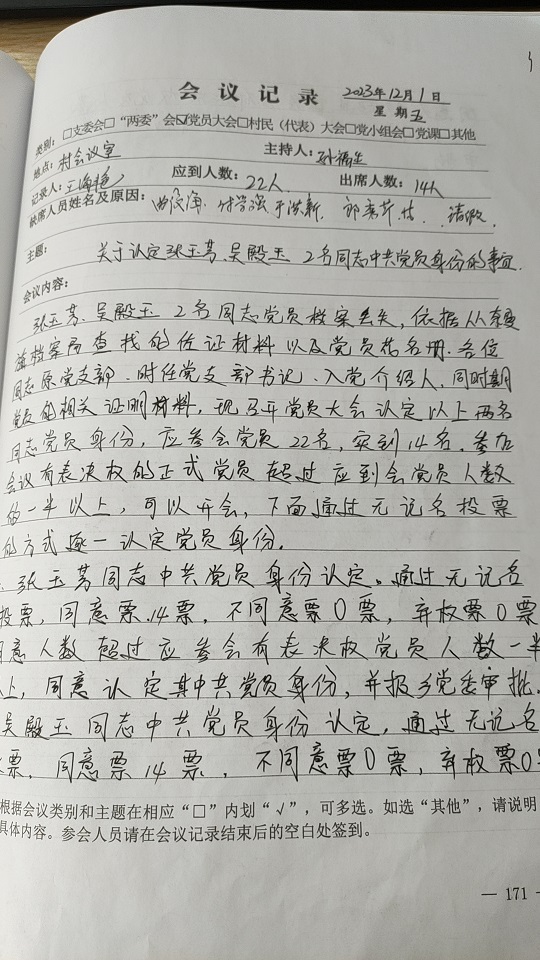 会议记录 2023年12月1日
星期五
类别：□支委会□“两委”会☑党员大会□村民（代表）大会□党小组会□党课□其他
地点：村会议室 主持人：孙福生
记录人：王海艳 应到人数：22人 出席人数：14人
缺席人员姓名及原因： 请假
主题：关于认定张玉芳、吴殿玉2名同志中共党员身份的事宜
会议内容：
张玉芳、吴殿玉2名同志党员档案丢失，依据从
档案局查找的佐证材料以及党员花名册、各位
同志原党支部、时任党支部书记、入党介绍人、同时期
党员的相关证明材料，现召开党员大会认定以上两名
同志党员身份，应参会党员22名，实到14名，参加
会议有表决权的正式党员超过应到会党员人数
的一半以上，可以开会，下面通过无记名投票
的方式逐一认定党员身份.
、张玉芳同志中共党员身份认定。通过无记名
投票，同意票14票，不同意票0票，弃权票0票
意人数超过应参会有表决权党员人数一半
上，同意认定其中共党员身份，并报乡党委审批.
吴殿玉同志中共党员身份认定，通过无记名
票，同意票14票，不同意票0票，弃权票0
根据会议类别和主题在相应“□”内划“√”，可多选。如选“其他”，请说明
具体内容。参会人员请在会议记录结束后的空白处签到。
— 171